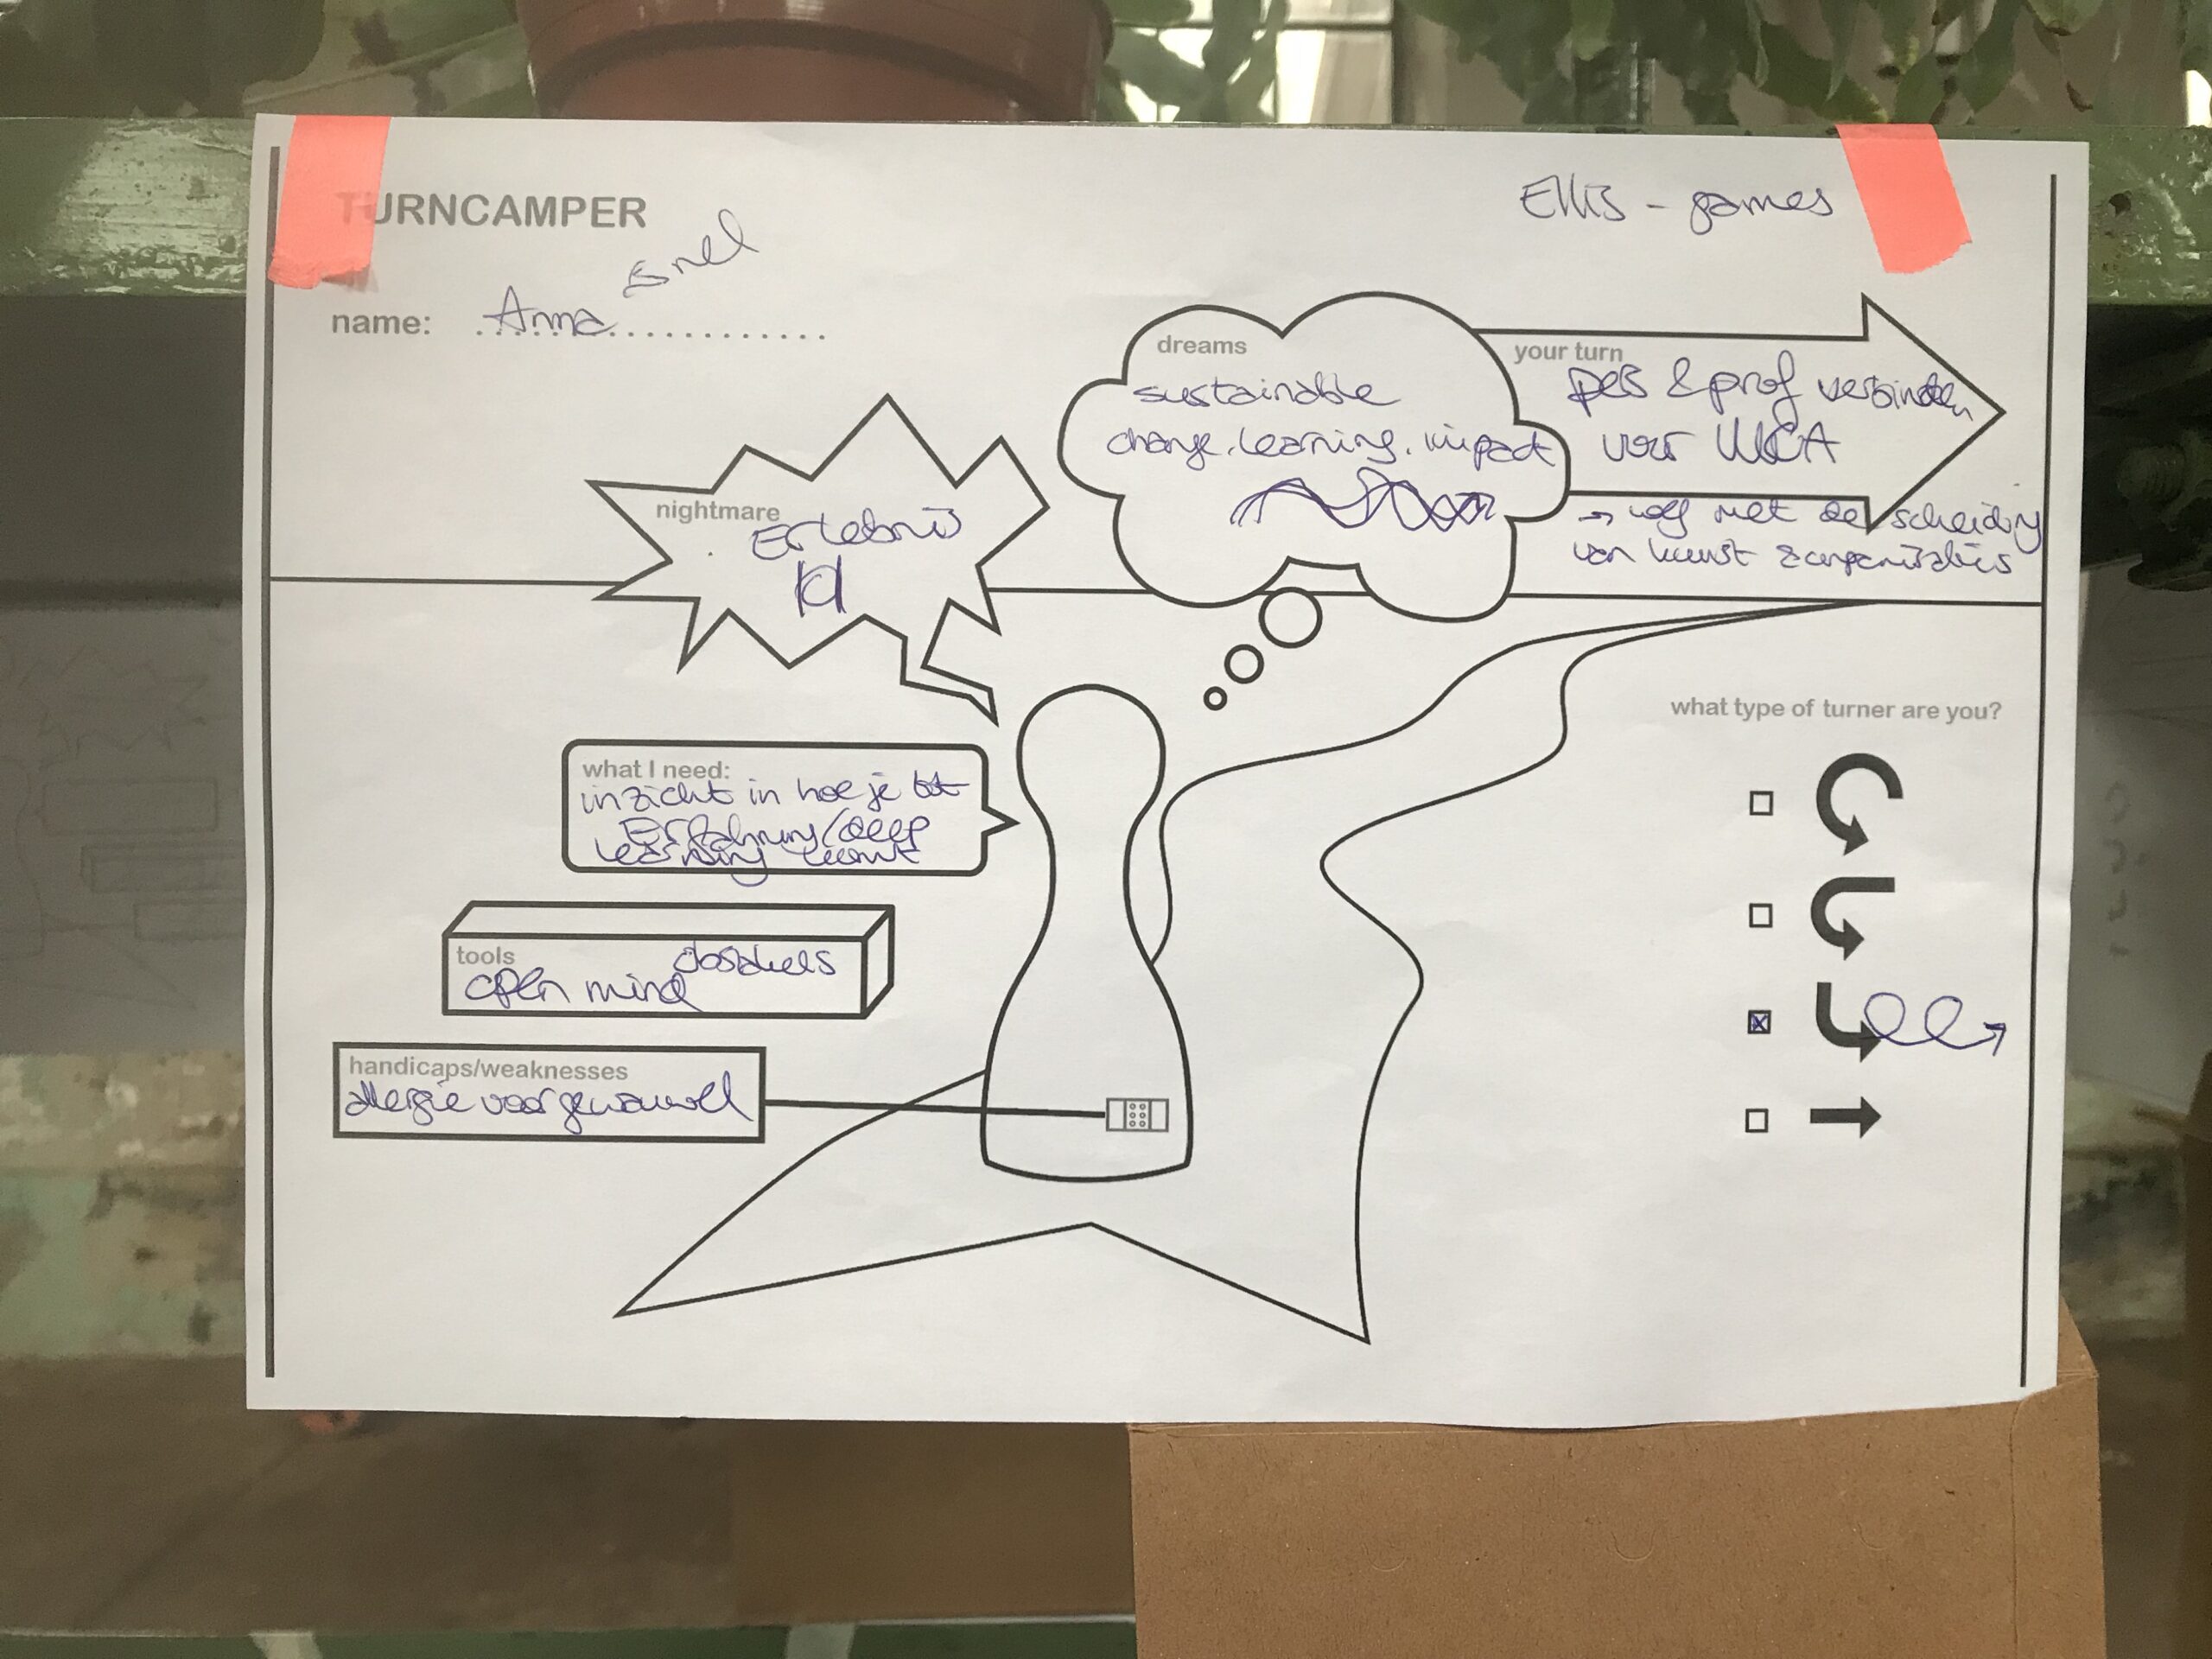 TURNCAMPER
Ellis - games
snel
name: Anna
dreams
sustainable
change. learning. impact
your turn
pers & prof verbinden
voor WCA
→ weg met de scheiding
van kunst & organisaties
nightmare
Erlebnis
what I need:
inzicht in hoe je tot
Erfahrung/deep
learning komt
tools
open mind
handicaps/weaknesses
allergie voor gewauwel
what type of turner are you?